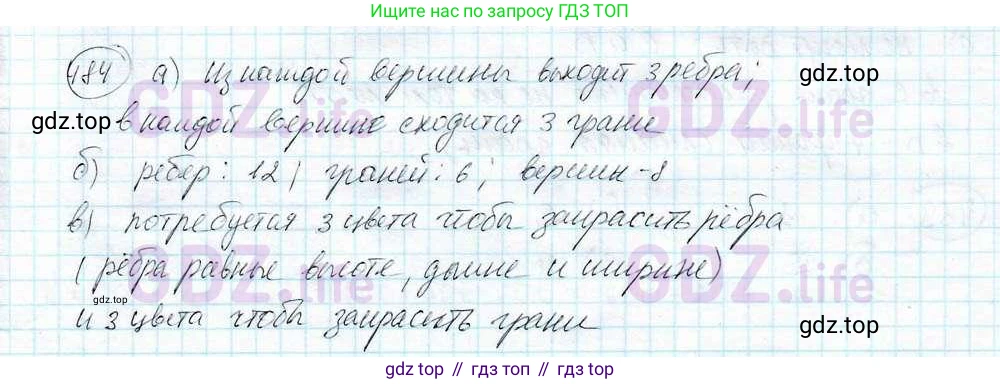 Ищите ответы по запросу ГДЗ ТОП
184 а) Из каждой вершины выходит 3 ребра;
gdz.top в каждой вершине сходится 3 грани
GDZ.life GDZ.life
б) рёбер: 12; граней: 6; вершин - 8
в) потребуется 3 цвета чтобы закрасить рёбра
(рёбра равные высоте, длине и ширине)
GDZ.life GDZ.life
gdz.top
и 3 цвета чтобы закрасить грани gdz.top
gdz.top // гдз.топ // gdz.top // гдз.топ